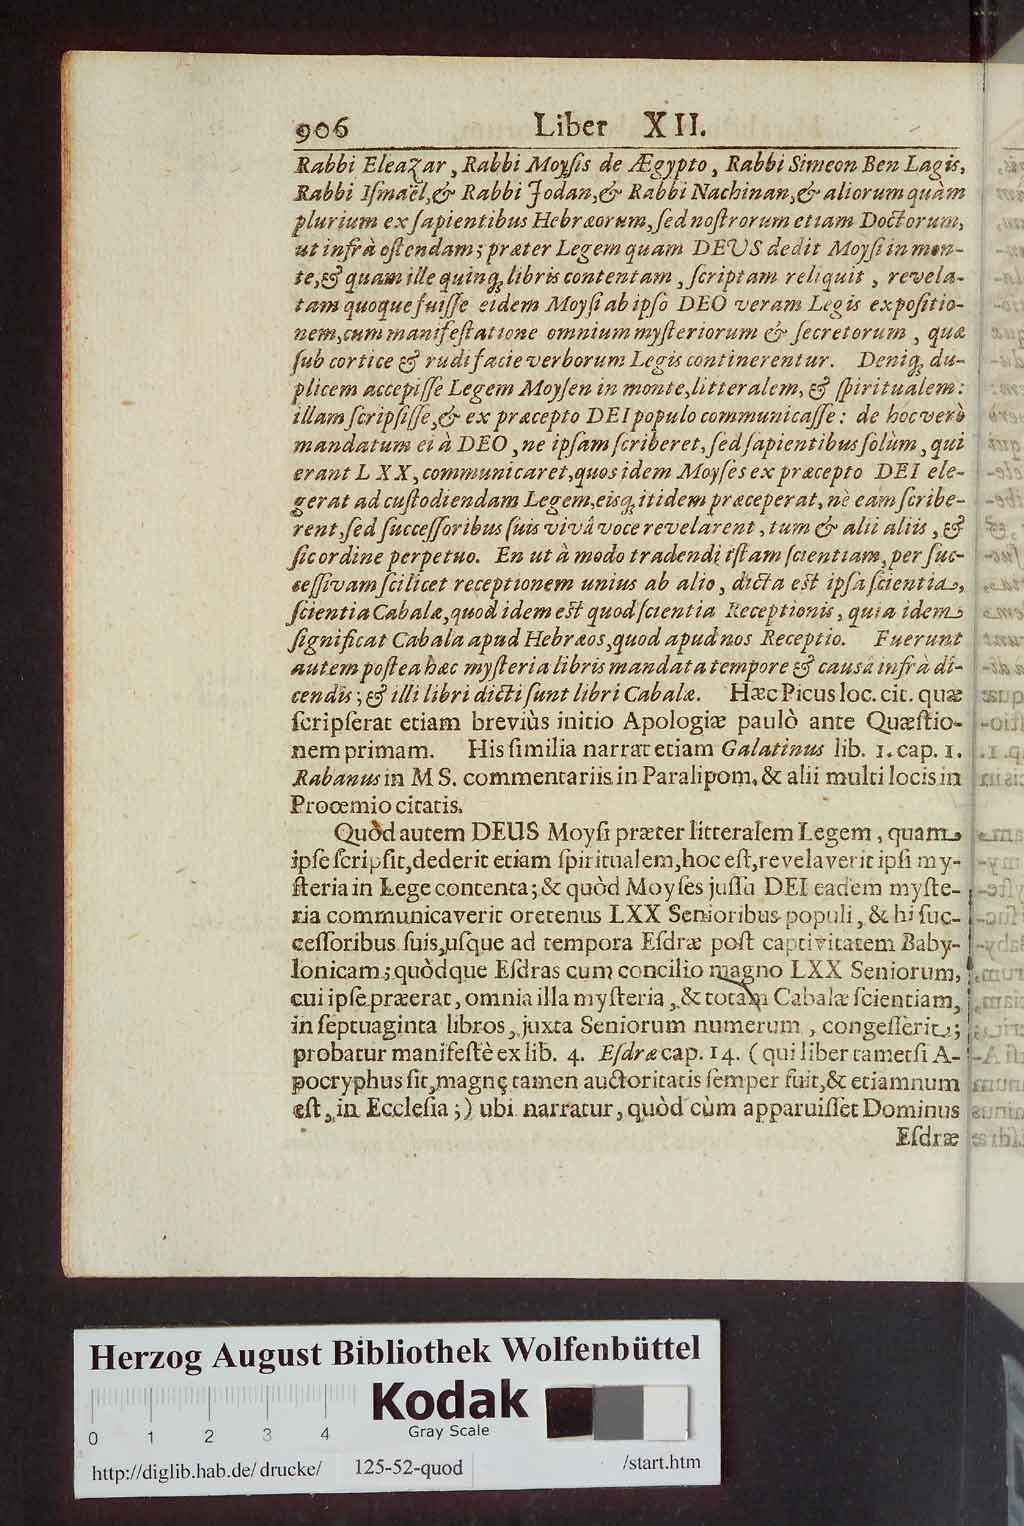 906 Liber XII.
Rabbi Eleazar, Rabbi Moyſis de Ægypto, Rabbi Simeon Ben Lagis,
Rabbi Iſmaël, & Rabbi Jodan, & Rabbi Nachinan, & aliorum quàm
plurium ex ſapientibus Hebræorum, ſed noſtrorum etiam Doctorum,
ut infrà oſtendam; præter Legem quam DEUS dedit Moyſi in mon-
te, & quam ille quinq; libris contentam, ſcriptam reliquit, revela-
tam quoque fuiſſe eidem Moyſi ab ipſo DEO veram Legis expoſitio-
nem, cum manifeſtatione omnium myſteriorum & ſecretorum, quæ
ſub cortice & rudi facie verborum Legis continerentur. Deniq; du-
plicem accepiſſe Legem Moyſen in monte, litteralem, & ſpiritualem:
illam ſcripſiſſe, & ex præcepto DEI populo communicaſſe: de hoc verò
mandatum ei à DEO, ne ipſam ſcriberet, ſed ſapientibus ſolùm, qui
erant LXX, communicaret, quos idem Moyſes ex præcepto DEI ele-
gerat ad cuſtodiendam Legem, eisq; itidem præceperat, nè eam ſcribe-
rent, ſed ſucceſſoribus ſuis vivâ voce revelarent, tum & alii aliis, &
ſic ordine perpetuo. En ut à modo tradendi iſtam ſcientiam, per ſuc-
ceſſivam ſcilicet receptionem unius ab alio, dicta eſt ipſa ſcientia,
ſcientia Cabalæ, quod idem eſt quod ſcientia Receptionis, quia idem
ſignificat Cabala apud Hebræos, quod apud nos Receptio. Fuerunt
autem poſtea hæc myſteria libris mandata tempore & causâ infrà di-
cendis; & illi libri dicti ſunt libri Cabalæ. Hæc Picus loc. cit. quæ
ſcripſerat etiam breviùs initio Apologiæ paulò ante Quæſtio-
nem primam. His ſimilia narrat etiam Galatinus lib. 1. cap. 1.
Rabanus in MS. commentariis in Paralipom. & alii multi locis in
Proœmio citatis.
Quòd autem DEUS Moyſi præter litteralem Legem, quam
ipſe ſcripſit, dederit etiam ſpiritualem, hoc eſt, revelaverit ipſi my-
ſteria in Lege contenta; & quòd Moyſes juſſu DEI eadem myſte-
ria communicaverit oretenus LXX Senioribus populi, & hi ſuc-
ceſſoribus ſuis, uſque ad tempora Eſdræ poſt captivitatem Baby-
lonicam; quòdque Eſdras cum concilio magno LXX Seniorum,
cui ipſe præerat, omnia illa myſteria, & totam Cabalæ ſcientiam,
in ſeptuaginta libros, juxta Seniorum numerum, congeſſèrit;
probatur manifeſtè ex lib. 4. Eſdræ cap. 14. (qui liber tametſi A-
pocryphus ſit, magnę tamen auctoritatis ſemper fuit, & etiamnum
eſt, in Eccleſia;) ubi narratur, quòd cùm apparuiſſet Dominus
Eſdræ
Herzog August Bibliothek Wolfenbüttel
Kodak
Gray Scale
0 1 2 3 4
http://diglib.hab.de/drucke/ 125-52-quod /start.htm